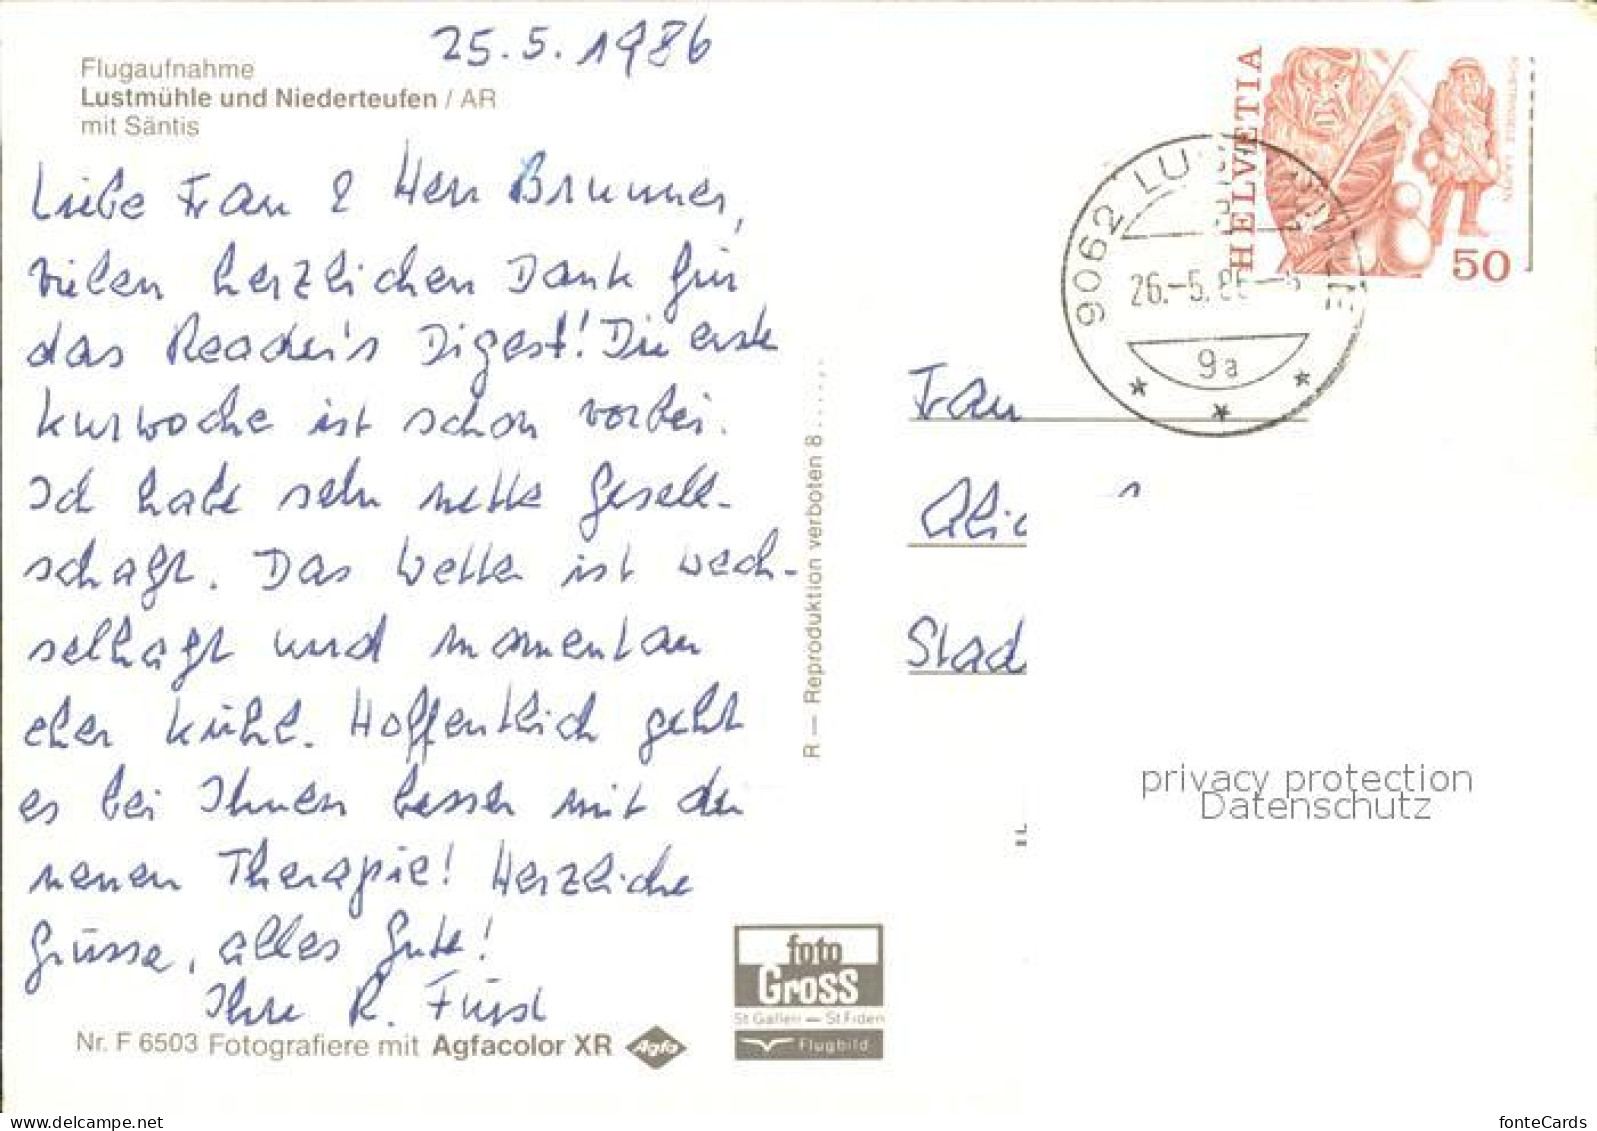 25.5.1986
Flugaufnahme
Lustmühle und Niederteufen / AR
mit Säntis
Liebe Frau & Herr Brunner,
vielen herzlichen Dank für
das Reader's Digest! Die erste
Kurwoche ist schon vorbei.
Ich habe sehr nette Gesell-
schaft. Das Wetter ist wech-
selhaft und momentan
eher kühl. Hoffentlich geht
es bei Ihnen besser mit der
neuen Therapie! Herzliche
Grüsse, alles Gute!
Ihre R. Fürst
Nr. F 6503 Fotografiere mit Agfacolor XR Agfa
R — Reproduktion verboten 8......
foto
Gross
St Gallen — St Fiden
Flugbild
HELVETIA
50
9062 LU
26.-5.86
9a
Frau
Alic
Stad
privacy protection
Datenschutz
fonteCards